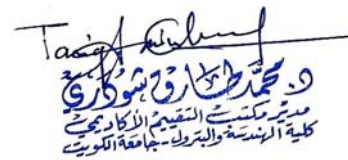 د. محمد طارق شودري
مدير مكتب التقييم الأكاديمي
كلية الهندسة والبترول - جامعة الكويت